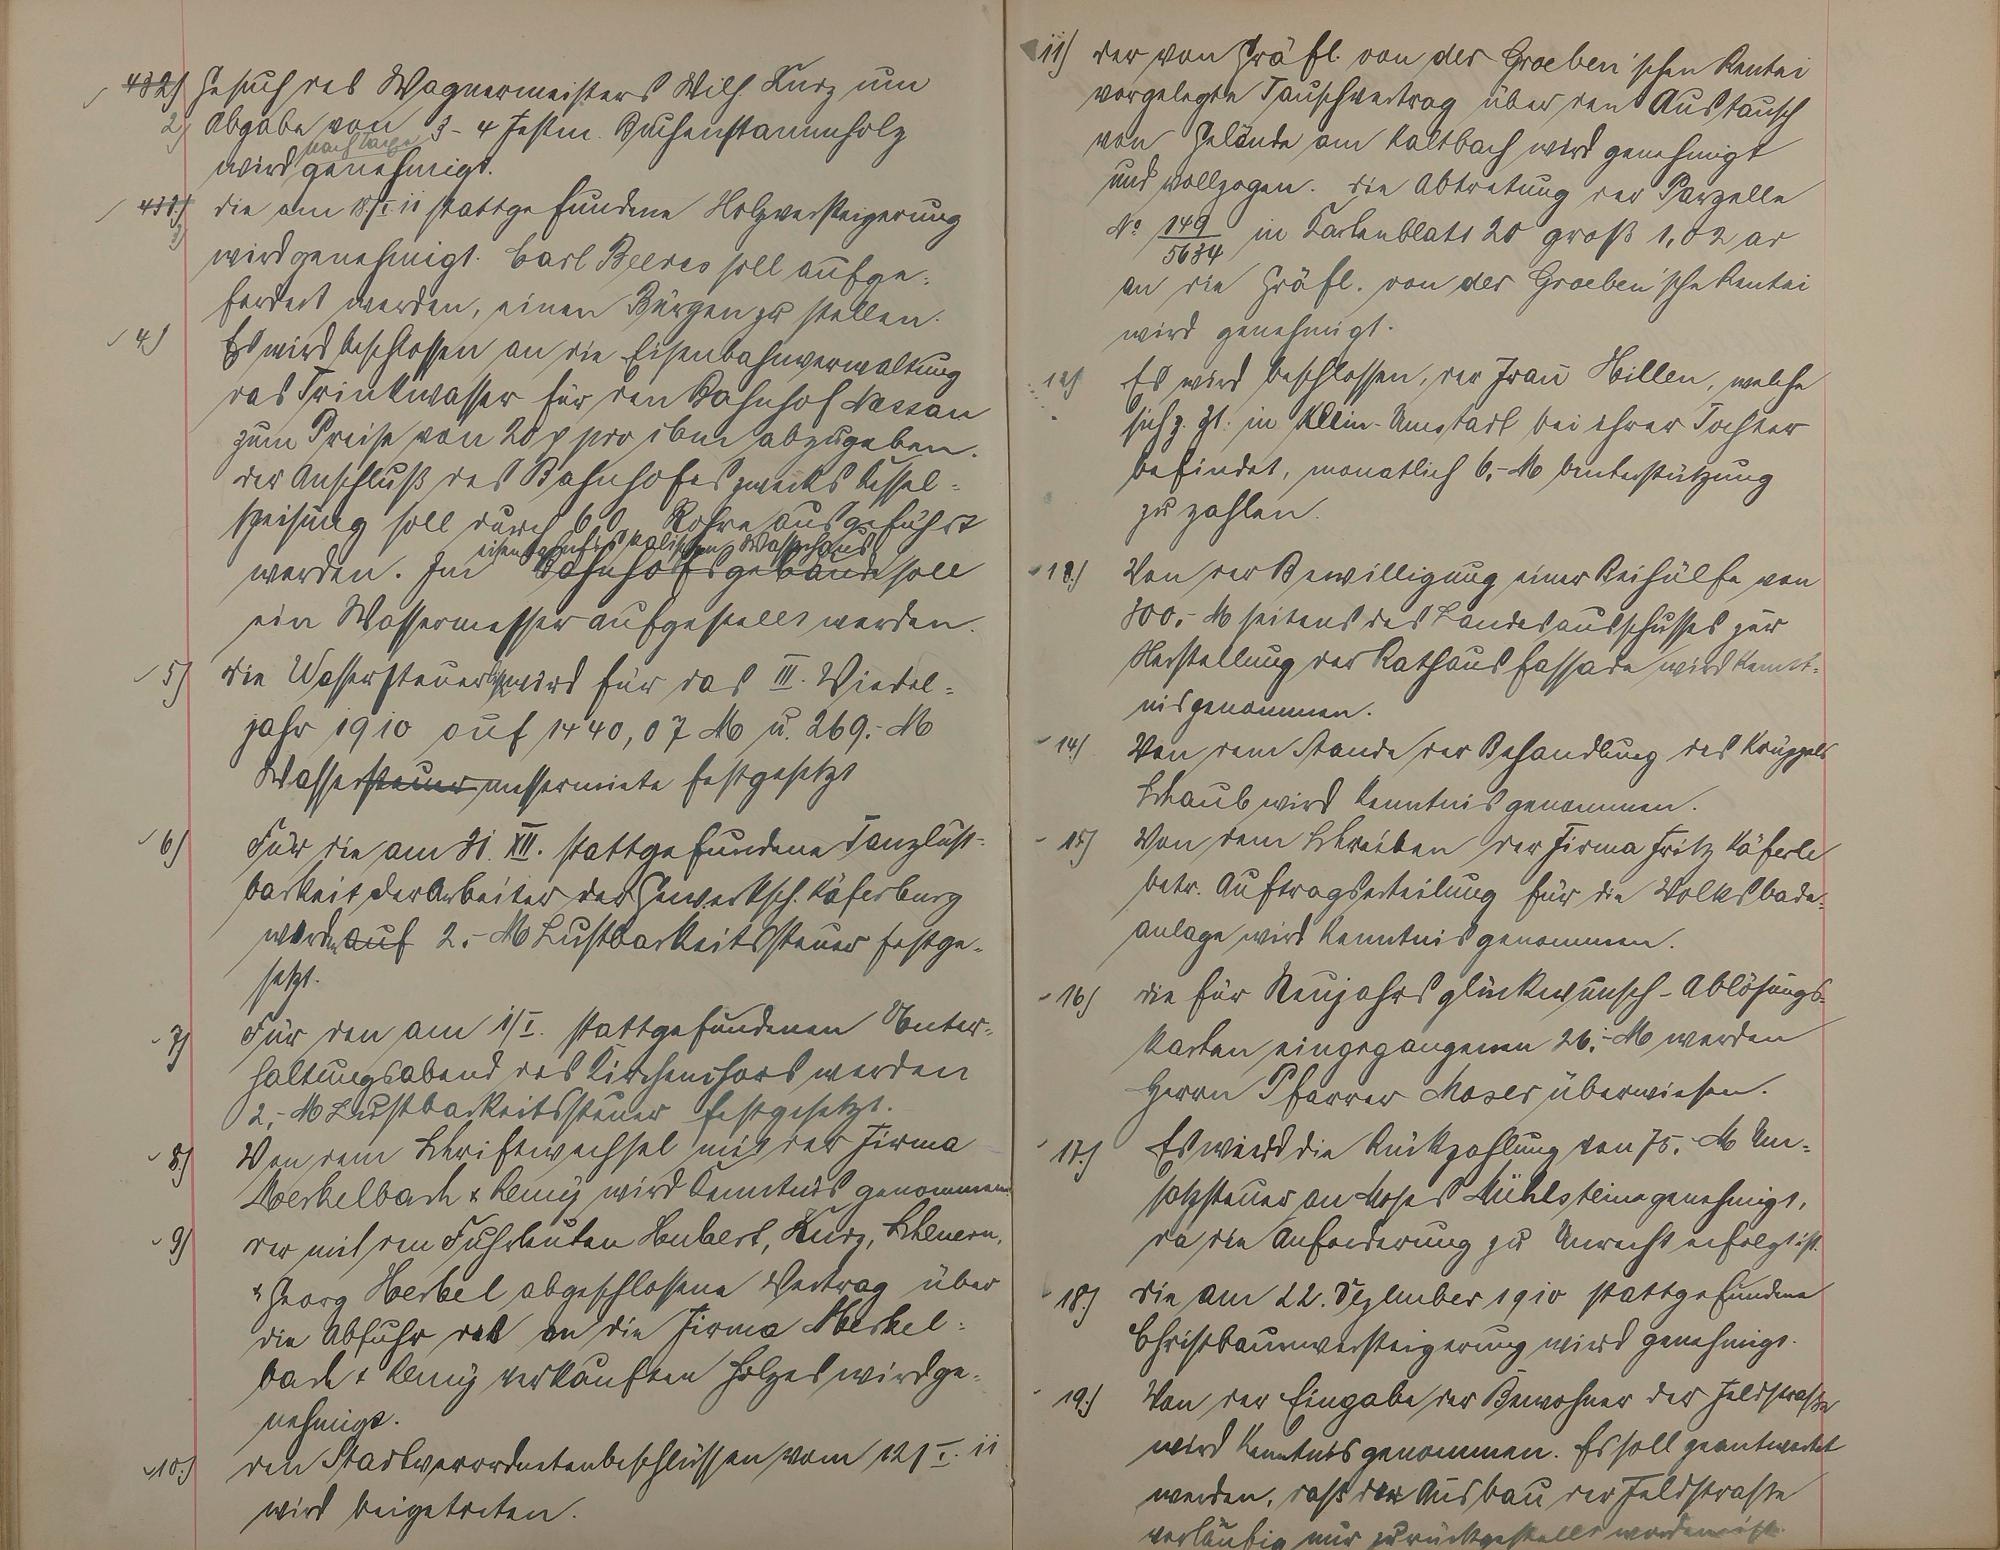 432) Gesuch des Wagnermeisters Wilh. Kurz um
2) Abgabe von 3-4 Festm. Buchenstammholz
nach Taxe
wird genehmigt.
433.) Die am 18./I. 11 stattgefundene Holzversteigerung
3) wird genehmigt. Carl Beeres soll aufge-
fordert werden, einen Bürgen zu stellen.
4.) Es wird beschlossen an die Eisenbahnverwaltung
das Trinkwasser für den Bahnhof Nassau
zum Preise von 20 ₰ pro cbm abzugeben.
Der Anschluß des Bahnhofes zwecks Kessel-
speisung soll durch 60 Rohre ausgeführt
eisenbahnfiskalischen Wasserhaus
werden. Im Bahnhofsgebäude soll
ein Wassermesser aufgestellt werden.
5) Die Wassersteuer wird für das III. Viertel-
jahr 1910 auf 1440,07 M u. 269.- M
Wassersteuer messermiete festgesetzt
6) Für die am 31. XII. stattgefundene Tanzlust-
barkeit der Arbeiter der Gewerksch. Käferburg
werden auf 2.- M Lustbarkeitssteuer festge-
setzt.
7) Für den am 1/I. stattgefundenen Unter-
haltungsabend des Kirchenchors werden
2,- M Lustbarkeitssteuer festgesetzt.
8.) Von dem Schriftwechsel mit der Firma
Merkelbach & Remy wird Kenntnis genommen
9) Der mit den Fuhrleuten Hubert, Kurz, Scheuern,
& Georg Herbel abgeschlossene Vertrag über
die Abfuhr des an die Firma Merkel-
bach & Remy verkauften Holzes wird ge-
nehmigt.
10.) Den Stadtverordnetenbeschlüssen vom 12/I. 11
wird beigetreten.
11) Der von Gräfl. von der Groeben'schen Rentei
vorgelegte Tauschvertrag über den Austausch
von Gelände am Kaltbach wird genehmigt
und vollzogen. Die Abtretung der Parzelle
No 149/5634 in Kartenblatt 20 groß 1,02 ar
an die Gräfl. von der Groeben'sche Rentei
wird genehmigt.
12) Es wird beschlossen, der Frau Hillen, welche
sich z. Zt. in Klein-Umstadt bei ihrer Tochter
befindet, monatlich 6.- M Unterstützung
zu zahlen.
13.) Von der Bewilligung einer Beihülfe von
300.- M seitens des Landesausschusses zur
Herstellung der Rathausfassade wird Kennt-
nis genommen.
14.) Von dem Stande der Behandlung des Krüppels
Schaub wird Kenntnis genommen.
15) Von dem Schreiben der Firma Fritz Käferle
betr. Auftragserteilung für die Volksbade-
anlage wird Kenntnis genommen.
16) Die für Neujahrsglückwunsch-Ablösungs-
karten eingegangenen 26.- M werden
Herrn Pfarrer Moser überwiesen.
17.) Es wird die Rückzahlung von 75.- M Um-
satzsteuer an Moses Mühlstein genehmigt,
da die Anforderung zu Unrecht erfolgt ist.
18.) Die am 22. Dezember 1910 stattgefundene
Christbaumversteigerung wird genehmigt.
19.) Von der Eingabe der Bewohner der Feldstraße
wird Kenntnis genommen. Es soll geantwortet
werden, daß der Ausbau der Feldstraße
vorläufig nur zurückgestellt worden ist.